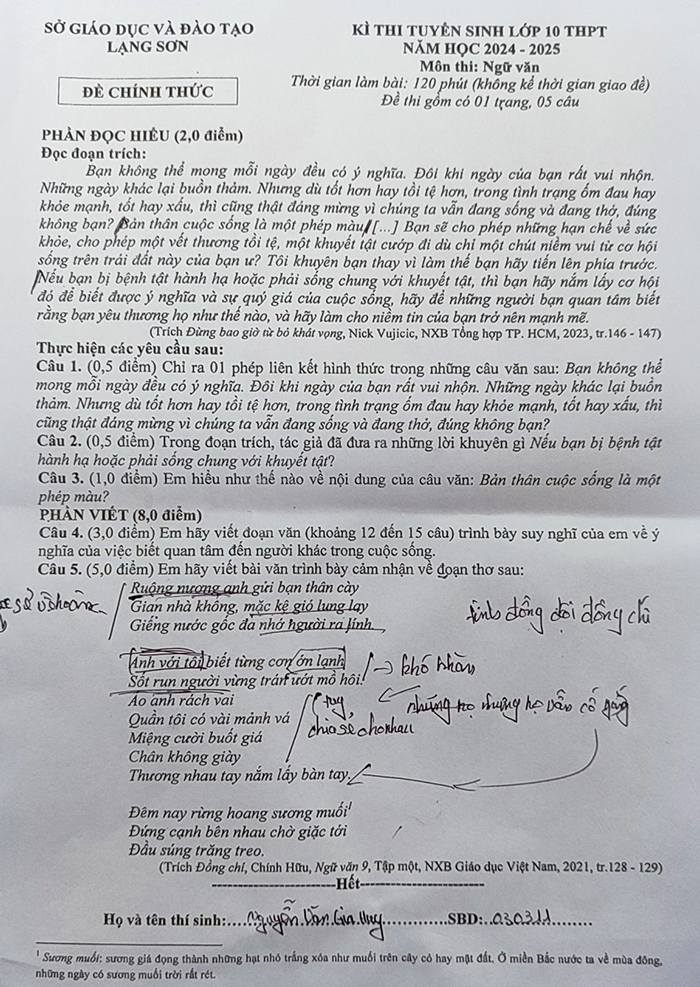 SỞ GIÁO DỤC VÀ ĐÀO TẠO
LẠNG SƠN
ĐỀ CHÍNH THỨC
KÌ THI TUYỂN SINH LỚP 10 THPT
NĂM HỌC 2024 - 2025
Môn thi: Ngữ văn
Thời gian làm bài: 120 phút (không kể thời gian giao đề)
Đề thi gồm có 01 trang, 05 câu
PHẦN ĐỌC HIỂU (2,0 điểm)
Đọc đoạn trích:
Bạn không thể mong mỗi ngày đều có ý nghĩa. Đôi khi ngày của bạn rất vui nhộn.
Những ngày khác lại buồn thảm. Nhưng dù tốt hơn hay tồi tệ hơn, trong tình trạng ốm đau hay
khỏe mạnh, tốt hay xấu, thì cũng thật đáng mừng vì chúng ta vẫn đang sống và đang thở, đúng
không bạn? Bản thân cuộc sống là một phép màu. [...] Bạn sẽ cho phép những hạn chế về sức
khỏe, cho phép một vết thương tồi tệ, một khuyết tật cướp đi dù chỉ một chút niềm vui từ cơ hội
sống trên trái đất này của bạn ư? Tôi khuyên bạn thay vì làm thế bạn hãy tiến lên phía trước.
Nếu bạn bị bệnh tật hành hạ hoặc phải sống chung với khuyết tật, thì bạn hãy nắm lấy cơ hội
đó để biết được ý nghĩa và sự quý giá của cuộc sống, hãy để những người bạn quan tâm biết
rằng bạn yêu thương họ như thế nào, và hãy làm cho niềm tin của bạn trở nên mạnh mẽ.
(Trích Đừng bao giờ từ bỏ khát vọng, Nick Vujicic, NXB Tổng hợp TP. HCM, 2023, tr.146 - 147)
Thực hiện các yêu cầu sau:
Câu 1. (0,5 điểm) Chỉ ra 01 phép liên kết hình thức trong những câu văn sau: Bạn không thể
mong mỗi ngày đều có ý nghĩa. Đôi khi ngày của bạn rất vui nhộn. Những ngày khác lại buồn
thảm. Nhưng dù tốt hơn hay tồi tệ hơn, trong tình trạng ốm đau hay khỏe mạnh, tốt hay xấu, thì
cũng thật đáng mừng vì chúng ta vẫn đang sống và đang thở, đúng không bạn?
Câu 2. (0,5 điểm) Trong đoạn trích, tác giả đã đưa ra những lời khuyên gì Nếu bạn bị bệnh tật
hành hạ hoặc phải sống chung với khuyết tật?
Câu 3. (1,0 điểm) Em hiểu như thế nào về nội dung của câu văn: Bản thân cuộc sống là một
phép màu?
PHẦN VIẾT (8,0 điểm)
Câu 4. (3,0 điểm) Em hãy viết đoạn văn (khoảng 12 đến 15 câu) trình bày suy nghĩ của em về ý
nghĩa của việc biết quan tâm đến người khác trong cuộc sống.
Câu 5. (5,0 điểm) Em hãy viết bài văn trình bày cảm nhận về đoạn thơ sau:
Ruộng nương anh gửi bạn thân cày
Gian nhà không, mặc kệ gió lung lay
Giếng nước gốc đa nhớ người ra lính
tình đồng đội đồng chí
Anh với tôi biết từng cơn ớn lạnh
khó khăn
Sốt run người vừng trán ướt mồ hôi.
Áo anh rách vai
Quần tôi có vài mảnh vá
chia sẻ cho nhau
nhưng họ vẫn cố gắng
Miệng cười buốt giá
Chân không giày
Thương nhau tay nắm lấy bàn tay.
Đêm nay rừng hoang sương muối¹
Đứng cạnh bên nhau chờ giặc tới
Đầu súng trăng treo.
(Trích Đồng chí, Chính Hữu, Ngữ văn 9, Tập một, NXB Giáo dục Việt Nam, 2021, tr.128 - 129)
-----------------------Hết-----------------------
Họ và tên thí sinh:....Nguyễn Văn Gia Huy...............SBD:..030311........
¹ Sương muối: sương giá đọng thành những hạt nhỏ trắng xóa như muối trên cây cỏ hay mặt đất. Ở miền Bắc nước ta về mùa đông,
những ngày có sương muối trời rất rét.